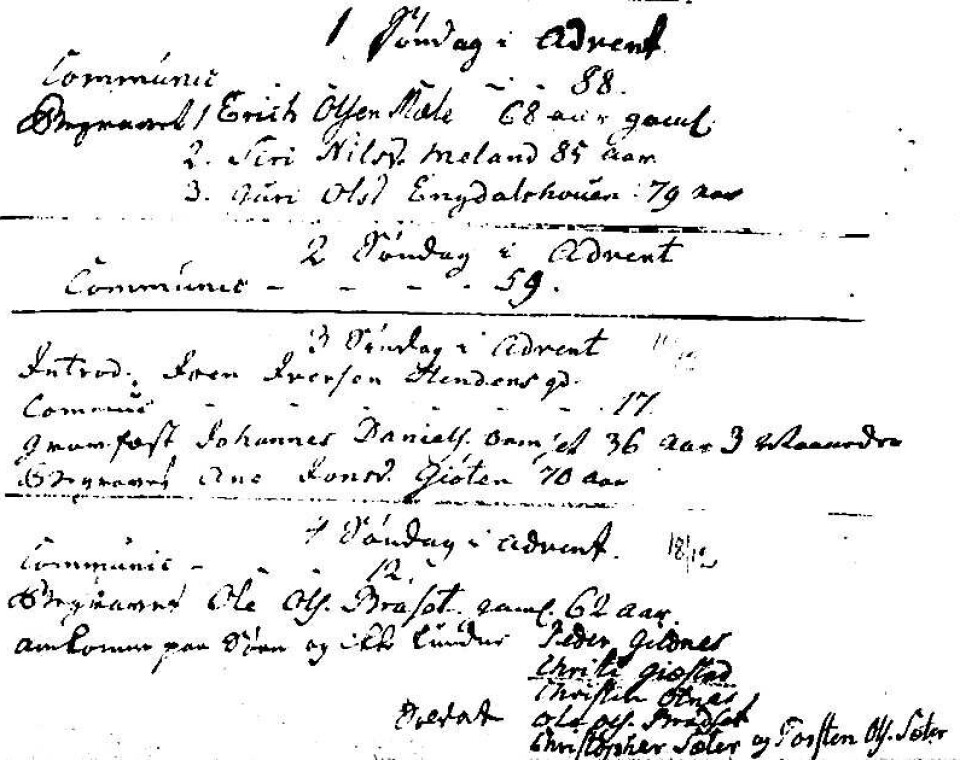 1 Søndag i Advent
Communic - - 88.
Begravet 1 Erich Olsen Mæle 68 aar gaml.
2. Siri Nilsd. Meland 85 aar
3. Guri Olsd Engdalshouen 79 aar
2 Søndag i Advent
Communic - - - - 59.
3 Søndag i Advent 11/12
Introd. Iver Iversen Hendens qd.
Commu - - - - - - 17.
Johannes Daniels. 36 aar 3 Maaneder
Begravet Ane Jonsd. Gióten 70 aar
4 Søndag i Advent. 18/12
Communic - 12.
Begravet Ole Ols. Brasøt gaml. 62 aar.
omkomne paa Søen og ikke funden Peder Gildnes
Christi Giøstad
Christen Otnes
Ole Ols. Bradset
Christopher Sæter og Torsten Ols. Sæter